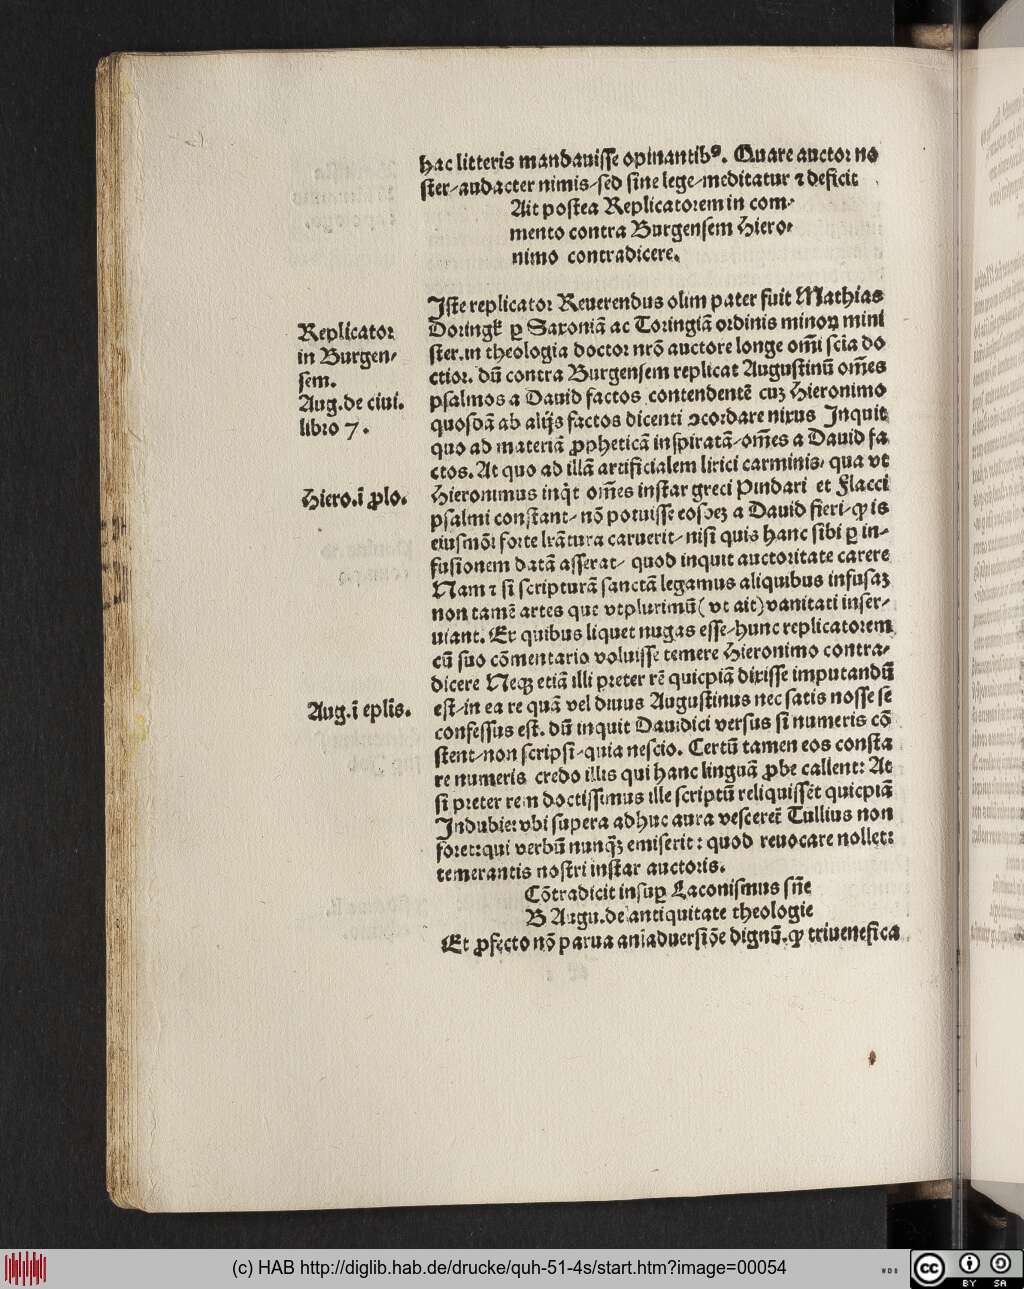 hac litteris mandauisse opinantibꝰ. Quare auctor no
ster/audacter nimis/sed sine lege/meditatur ⁊ deficit
Ait postea Replicatorem in com/
mento contra Burgensem Hiero/
nimo contradicere.
Iste replicator Reuerendus olim pater fuit Mathias
Replicator
in Burgen/
sem.
Aug.de ciui.
libro 7.
Doringk ꝑ Saxoniā ac Toringiā ordinis minoꝝ mini
ster.in theologia doctor nr̄o auctore longe om̄i sciā do
ctior. dū contra Burgensem replicat Augustinū om̄es
psalmos a Dauid factos contendentē cuꝫ Hieronimo
quosdā ab alijs factos dicenti ɔcordare nixus Inquit
quo ad materiā ꝓpheticā inspiratā/om̄es a Dauid fa
ctos. At quo ad illā artificialem lirici carminis/ qua vt
Hiero.ī ꝓlo.
Hieronimus inq̇t om̄es instar greci Pindari et Flacci
psalmi constant/ nō potuisse eosdeꝫ a Dauid fieri/ꝙ is
eiusmōi forte lrātura caruerit/ nisi quis hanc sibi ꝑ in/
fusionem datā asserat/ quod inquit auctoritate carere
Nam ⁊ si scripturā sanctā legamus aliquibus infusaꝫ
non tamē artes que vtplurimū( vt ait)vanitati inser/
uiant. Ex quibus liquet nugas esse/hunc replicatorem
cū suo cōmentario voluisse temere Hieronimo contra/
dicere Neqꝫ etiā illi preter rē quicpiā dixisse imputandū
Aug.ī eplis.
est/in ea re quā vel diuus Augustinus nec satis nosse se
confessus est. dū inquit Dauidici versus si numeris cō
stent/non scripsi/quia nescio. Certū tamen eos consta
re numeris credo illis qui hanc linguā ꝓbe callent: At
si preter rem doctissimus ille scriptū reliquissēt quicpiā
Indubie:vbi supera adhuc aura vesceret̄ Tullius non
foret:qui verbū nunq̄ꝫ emiserit: quod reuocare nollet:
temerantis nostri instar auctoris.
Cōtradicit insuꝑ Laconismus sn̄e
B Augu.de antiquitate theologie
Et ꝓfecto nō parua aniaduersiōe dignū.ꝙ triuenefica
(c) HAB http://diglib.hab.de/drucke/quh-51-4s/start.htm?image=00054
cc BY SA